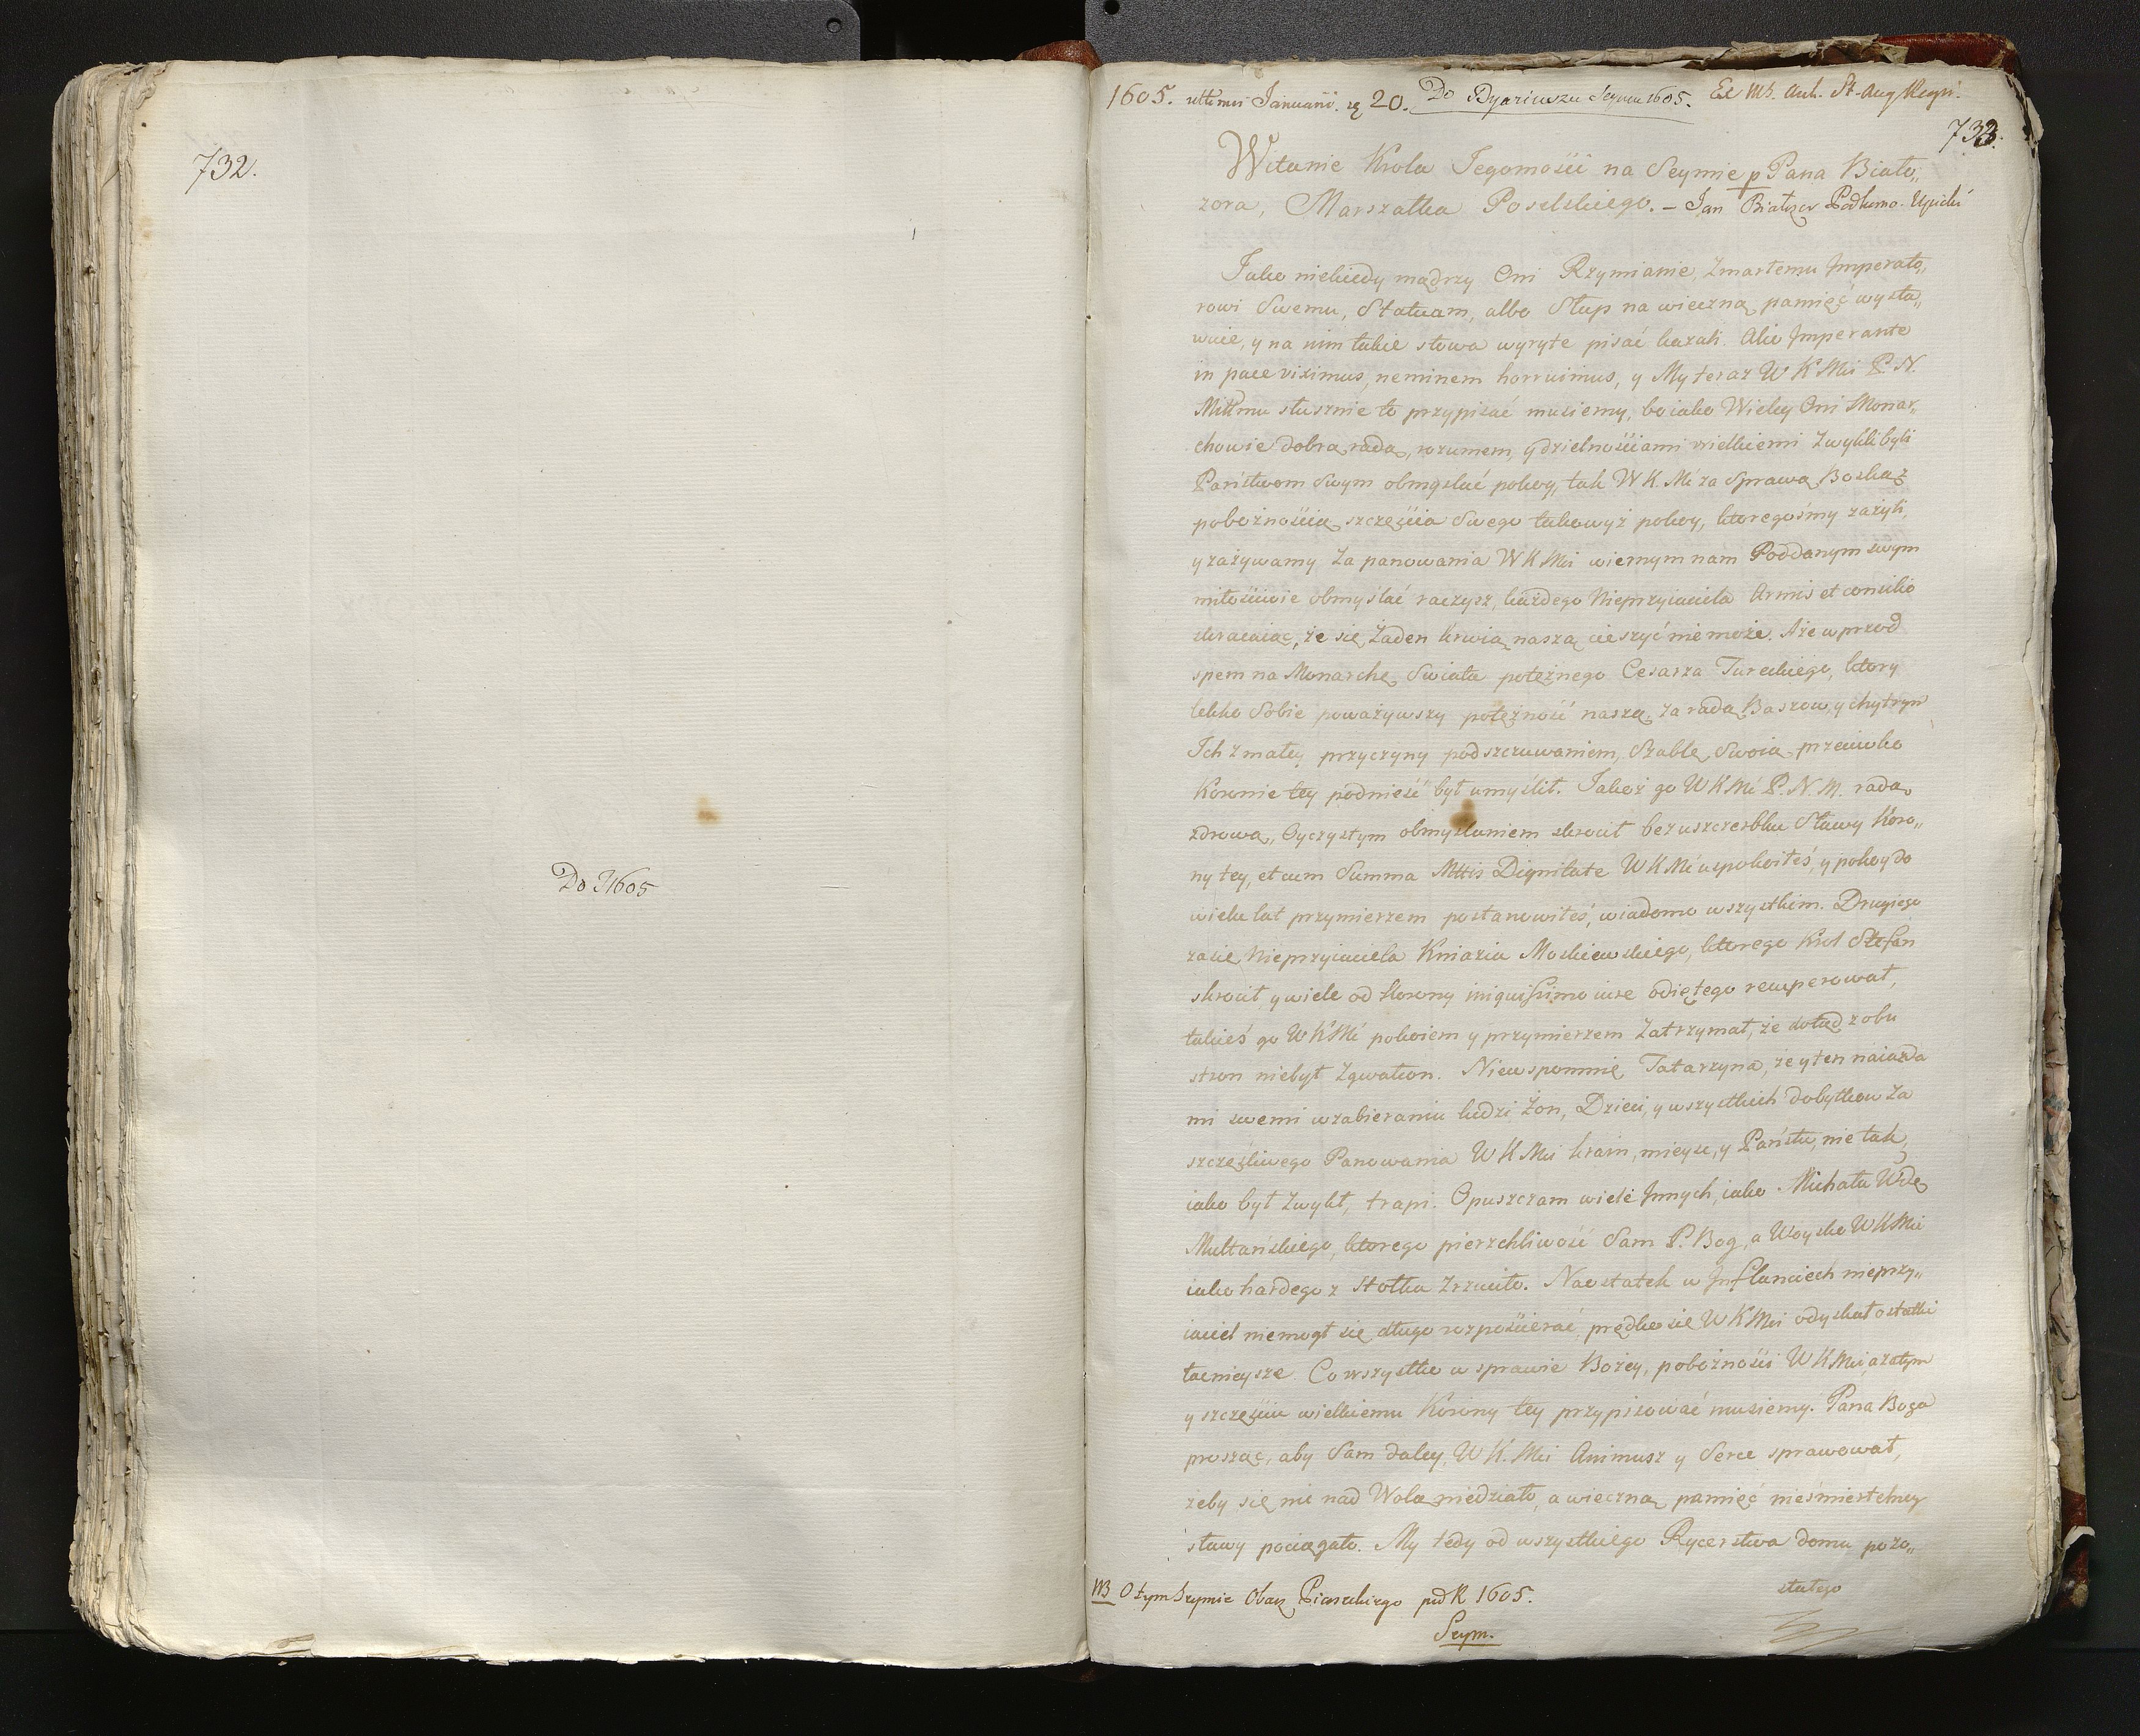 732.
Do J 1605
1605. ultimis Januarii. 20. Do Dyariuszu Seymu 1605. Ex MS. Aut. St. Aug Regis.
733.
Witanie Krola Jegomości na Seymie p Pana Biało„
zora, Marszałka Poselskiego. – Jan Białozor Podkomo. Upicki
Jako niekiedy mądrzy Oni Rzymianie, Zmarłemu Jmperato„
rowi Swemu, Statuam, albo Słup na wieczną pamięć wysta„
wuie, y na nim takie słowa wyryte pisać kazali. Alio Jmperante
in pace viximus, neminem horruimus, y My teraz W K Mci P. N.
Miłłmu słusznie to przypisać musiemy, bo iako Wielcy Oni Monar„
chowie dobrą radą, rozumem, y dzielnościami wielkiemi Zwykli byli
Państwom Swym obmyślać pokoy, tak W K. Mć za Sprawą Boską z
pobożnością szczęścia Swego takowyż pokoy, ktoregośmy zażyli,
y zażywamy Za panowania W K Mci wiernym nam Poddanym swym
miłościwie obmyślać raczysz, każdego Nieprzyiaciela Armis et consilio
skracaiąc, że się Żaden krwią naszą cieszyć nie może. Aże wprzod
spem na Monarchę Swiata potężnego Cesarza Tureckiego, ktory
lekko Sobie poważywszy potężność naszą, za radą Baszow, y chytrym
Ich z małey przyczyny podszczuwaniem, Szablę Swoią przeciwko
Koronie tey podnieść był umyślił. Jakoż go W K Mć P. N. M. radą
zdrową, Oyczystym obmyślaniem skrocił bez uszczerbku Sławy Koro„
ny tey, et cum Summa Mttis Dignitate W K Mć uspokoiłeś, y pokoy do
wielu lat przymierzem postanowiłeś, wiadomo wszystkim. Drugiego
zaśie Nieprzyiaciela Kniazia Moskiewskiego, ktorego Krol Stefan
skrocił y wiele od Korony iniquissimo iure odiętego recuperował,
takieś go W K Mć pokoiem y przymierzem Zatrzymał, że dotąd z obu
stron niebył Zgwałcon. Niewspomnię Tatarzyna, że y ten naiazda
mi swemi w zabieraniu ludzi Żon, Dzieci, y wszystkich dobytkow Za
szczęśliwego Panowania W K Mci krain, mieysc, y Państw, nie tak,
iako był Zwykł, trapi. Opuszczam wiele Jnnych, iako Michała Wdę
Multańskiego, ktorego pierzchliwość Sam P. Bog, a Woysko W K Mci
iako hardego z Stołka Zrzuciło. Naostatek w Jnflanciech nieprzy„
iaciel niemogł się długo rozpościerać, prędko się W K Mci odyskał ostatki
łacnieysze. Co wszystko w sprawie Bożey, pobożności W K Mci, a zatym
y szczęściu wielkiemu Korony tey przypisować musiemy. Pana Boga
prosząc, aby Sam daley, W K. Mci Animusz y Serce sprawował,
żeby się nic nad Wolą niedziało, a wieczną pamięć nieśmiertelney
sławy pociągało. My tedy od wszystkiego Rycerstwa domu pozo„
stałego
NB O tym Seymie Obacz Piaseckiego pod R 1605.
Seym.